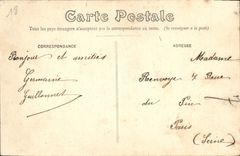 18
Carte Postale
Tous les pays étrangers n'acceptent pas la correspondance au verso. (Se renseigner à la poste)
CORRESPONDANCE
ADRESSE
Bonjour et amitiés
Germaine
Madame
du
Paris
(Seine)